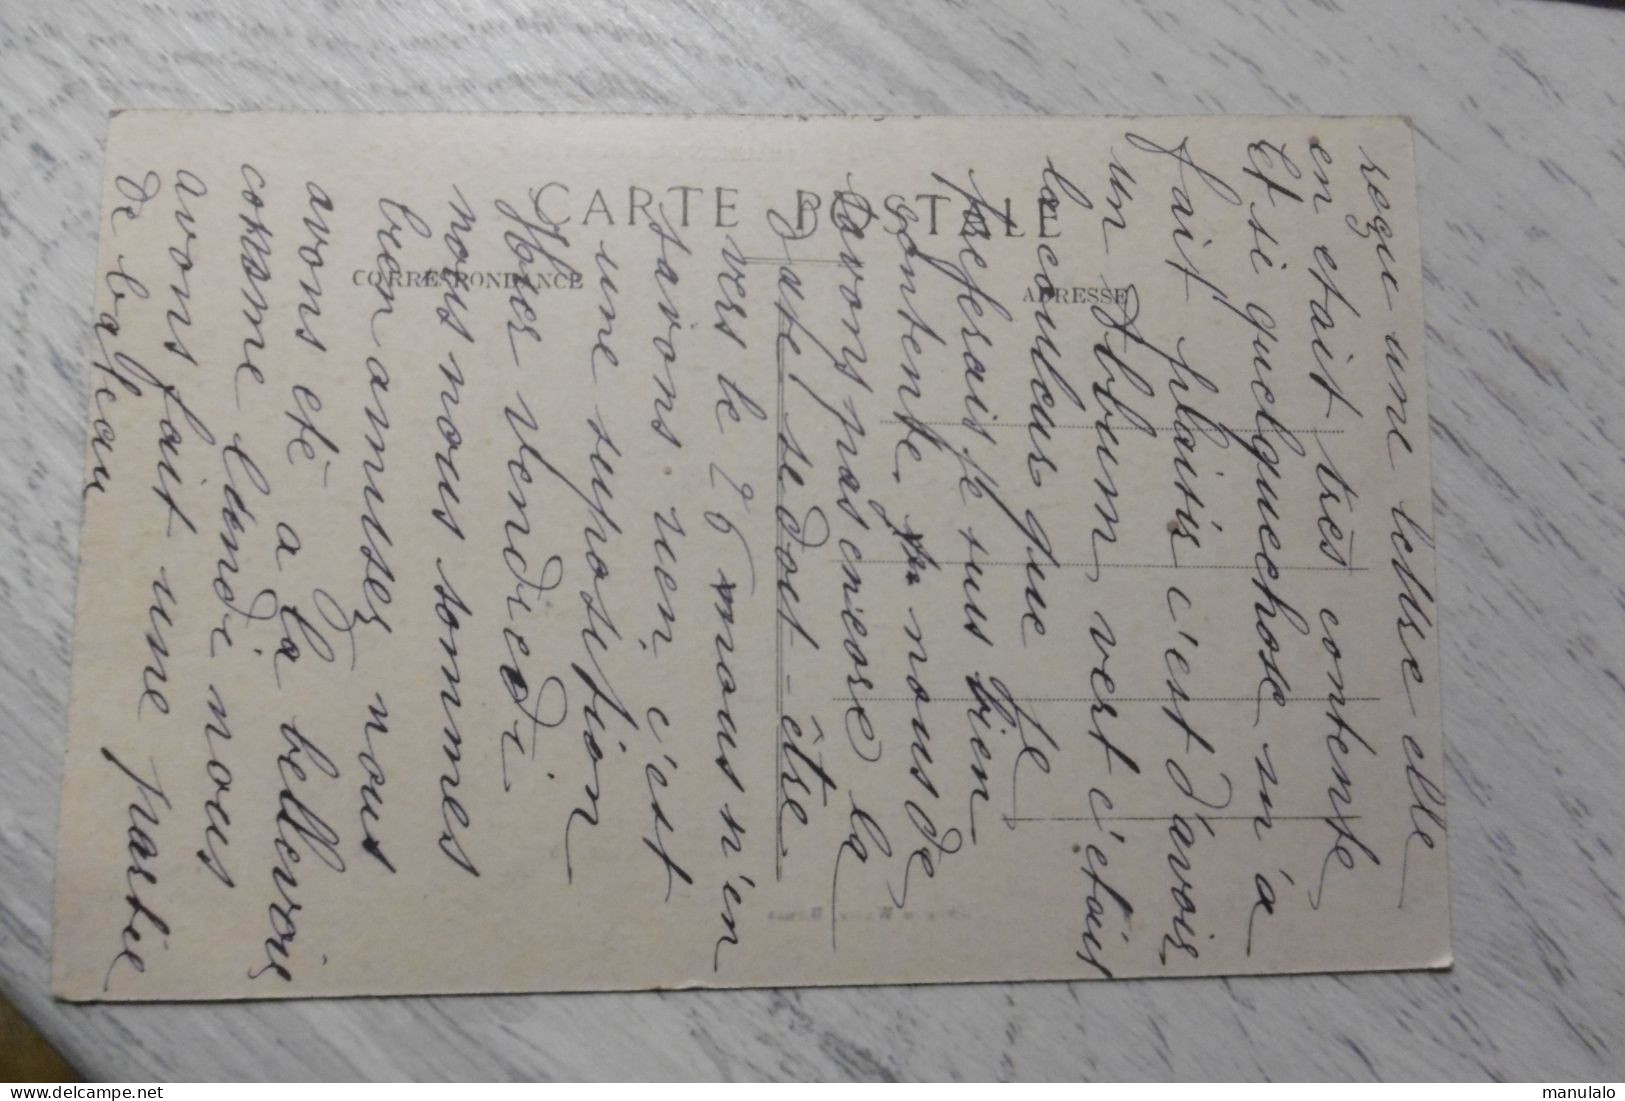 CARTE POSTALE
CORRESPONDANCE
ADRESSE
reçu une lettre elle
en etait très contente
Et si quelquechose m'a
fait plaisir c'est d'avoir
un Album vert c'etait
la couleur que je
preferais je suis bien
contente. nous ne
savons pas encore la
date, se doit-être
vers le 26 mais n'en
savons rien c'est
une suposition
Hier Vendredi
nous nous sommes
bien amusez nous
avons etè a la bellevoir
comme lundi nous
avons fait une partie
de bateau
manulalo